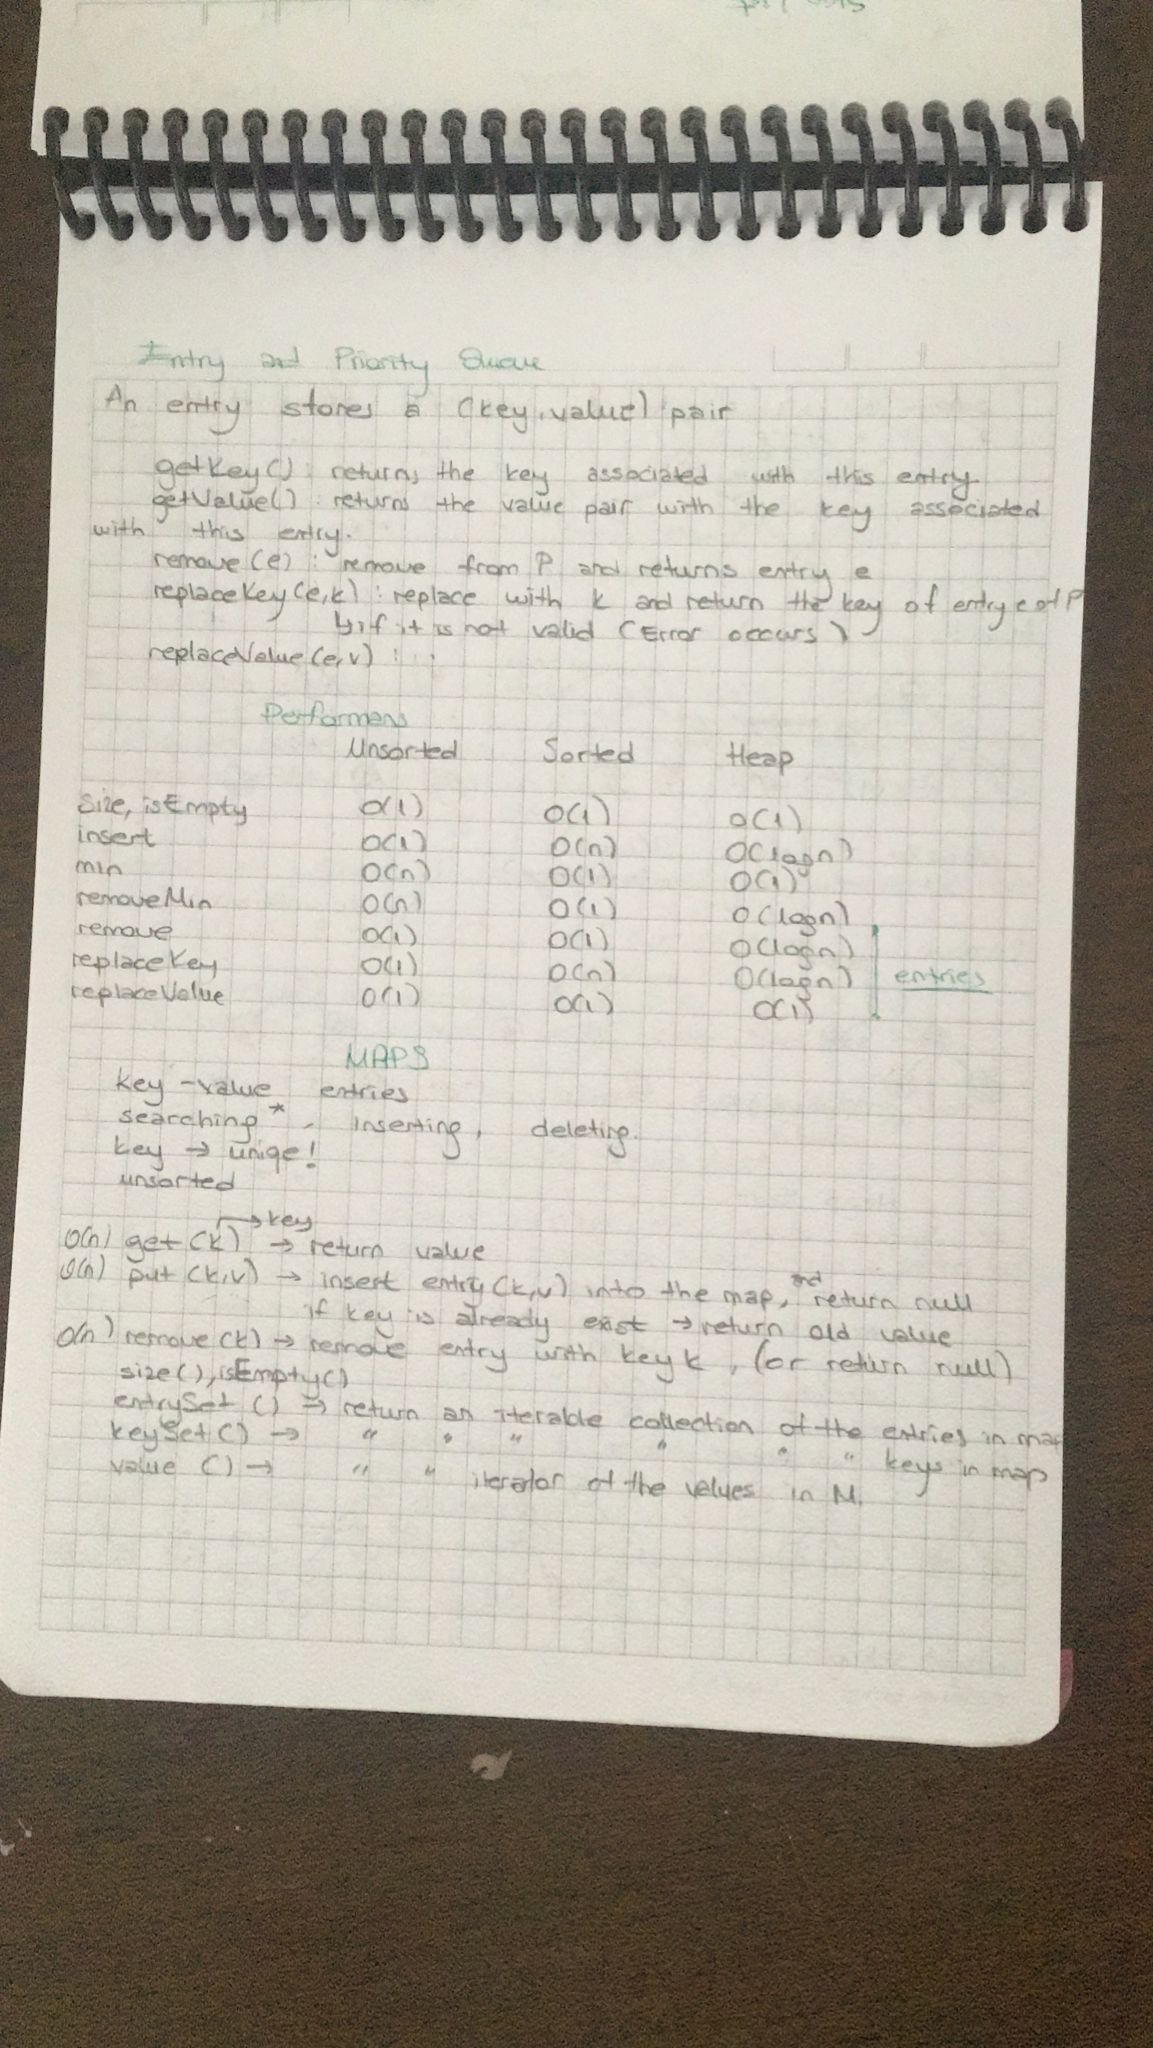 Entry and Priority Queue
An entry stores a (key, value) pair
getKey() : returns the key associated with this entry
getValue() : returns the value pair with the key associated
with this entry.
remove(e) : remove from P and returns entry e
replaceKey(e,k) : replace with k and return the key of entry e of P
↳ if it is not valid (Error occurs)
replaceValue(e,v) : ..
Performans
Unsorted Sorted Heap
Size, isEmpty O(1) O(1) O(1)
insert O(1) O(n) O(logn)
min O(n) O(1) O(1)
removeMin O(n) O(1) O(logn)
remove O(1) O(1) O(logn)
replaceKey O(1) O(n) O(logn) entries
replaceValue O(1) O(1) O(1)
MAPS
key-value entries
searching*, inserting, deleting.
key → uniqe!
unsorted
→ key
O(n) get(k) → return value
O(n) put(k,v) → insert entry(k,v) into the map, and return null
if key is already exist → return old value
O(n) remove(k) → remove entry with key k, (or return null)
size(), isEmpty()
entrySet() → return an iterable collection of the entries in map
keySet() → " " " " " " keys in map
value() → " " iterator of the values in M.